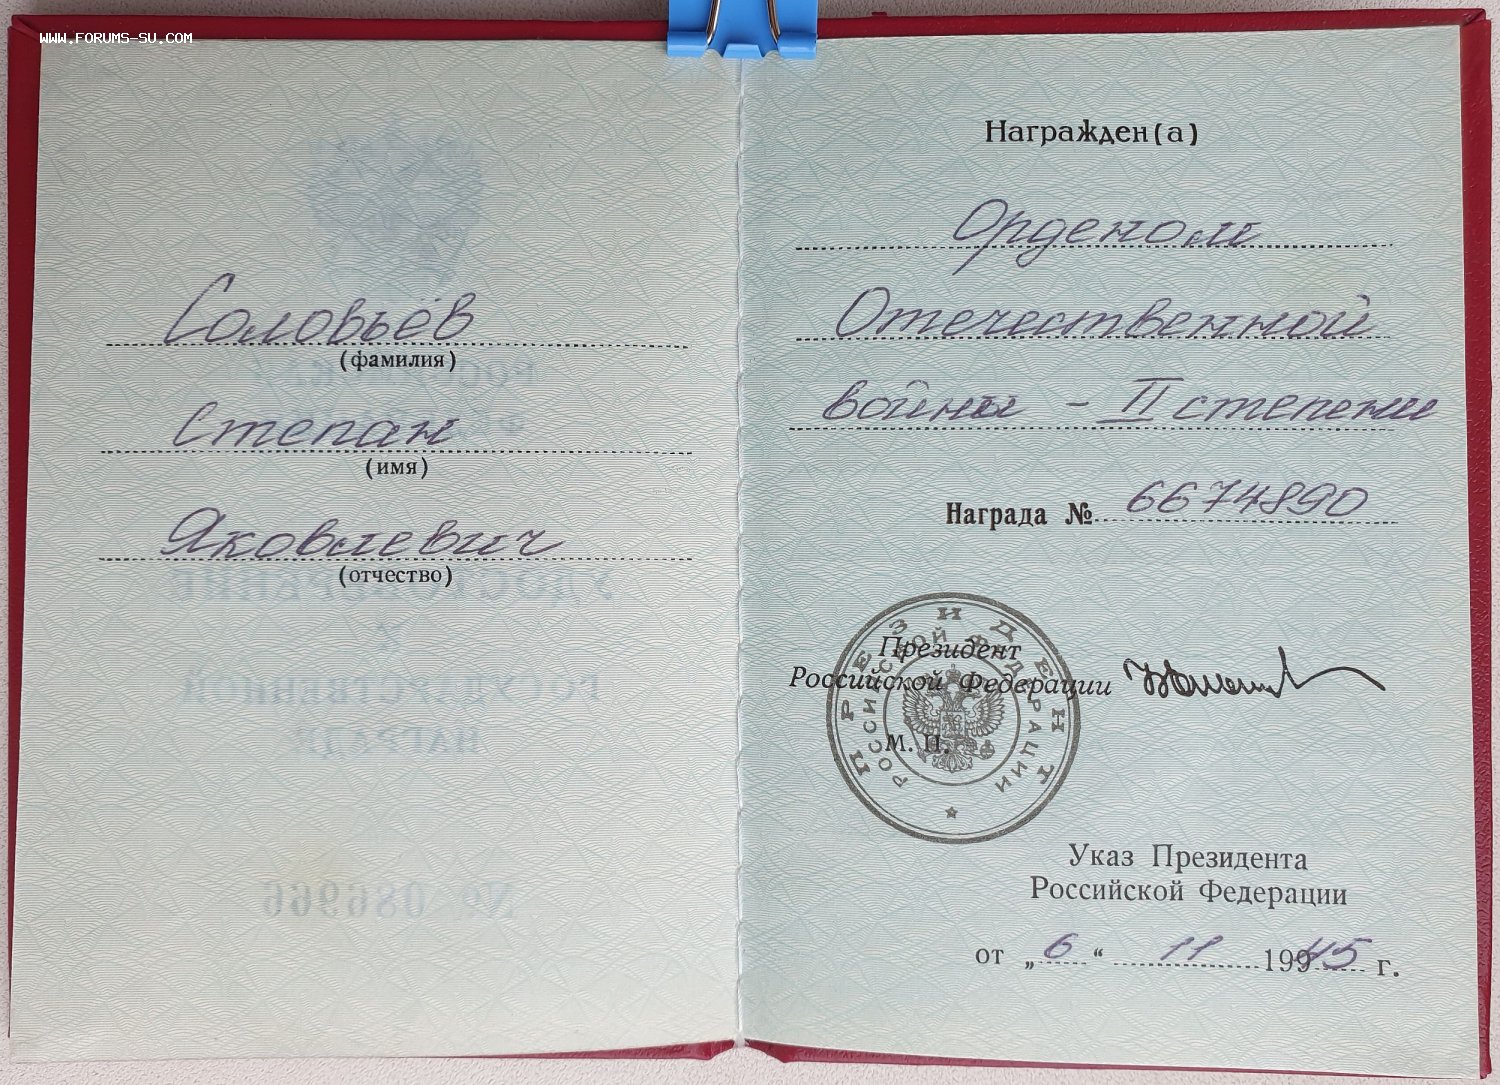 WWW.FORUMS-SU.COM
Соловьёв
(фамилия)
Степан
(имя)
Яковлевич
(отчество)
РОССИЙСКАЯ
ФЕДЕРАЦИЯ
УДОСТОВЕРЕНИЕ
К
ГОСУДАРСТВЕННОЙ
НАГРАДЕ
№ 086966
Награжден(а)
Орденом
Отечественной
войны - II степени
Награда № 6674890
ПРЕЗИДЕНТ
РОССИЙСКОЙ ФЕДЕРАЦИИ
Президент
Российской Федерации
М. П.
Указ Президента
Российской Федерации
от „6“ 11 19945 г.